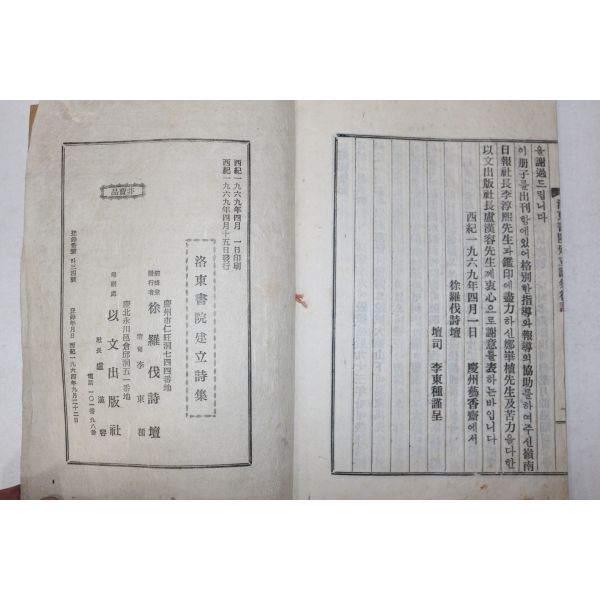 을謝過드립니다
이册子를出刊함에있어格別한指導와報導의協助를하여주신嶺南
日報社長李淳熙先生과鑑印에盡力하신鄭畢植先生及苦力을다한
以文出版社長盧漢容先生께衷心으로謝意를表하는바입니다
西紀一九六九年四月一日 慶州藝香齋에서
徐羅伐詩壇
壇司 李東種謹呈
西紀一九六九年四月 一日印刷
西紀一九六九年四月十五日發行
洛東書院建立詩集
慶州市仁旺洞七四四番地
發行者
徐羅伐詩壇
李東種
慶北永川邑倉邱洞五一番地
印刷處
以文出版社
社長 盧漢容
電話 一〇一番 九八番
登錄年月日 西紀一九六四年九月二十二日
非賣品